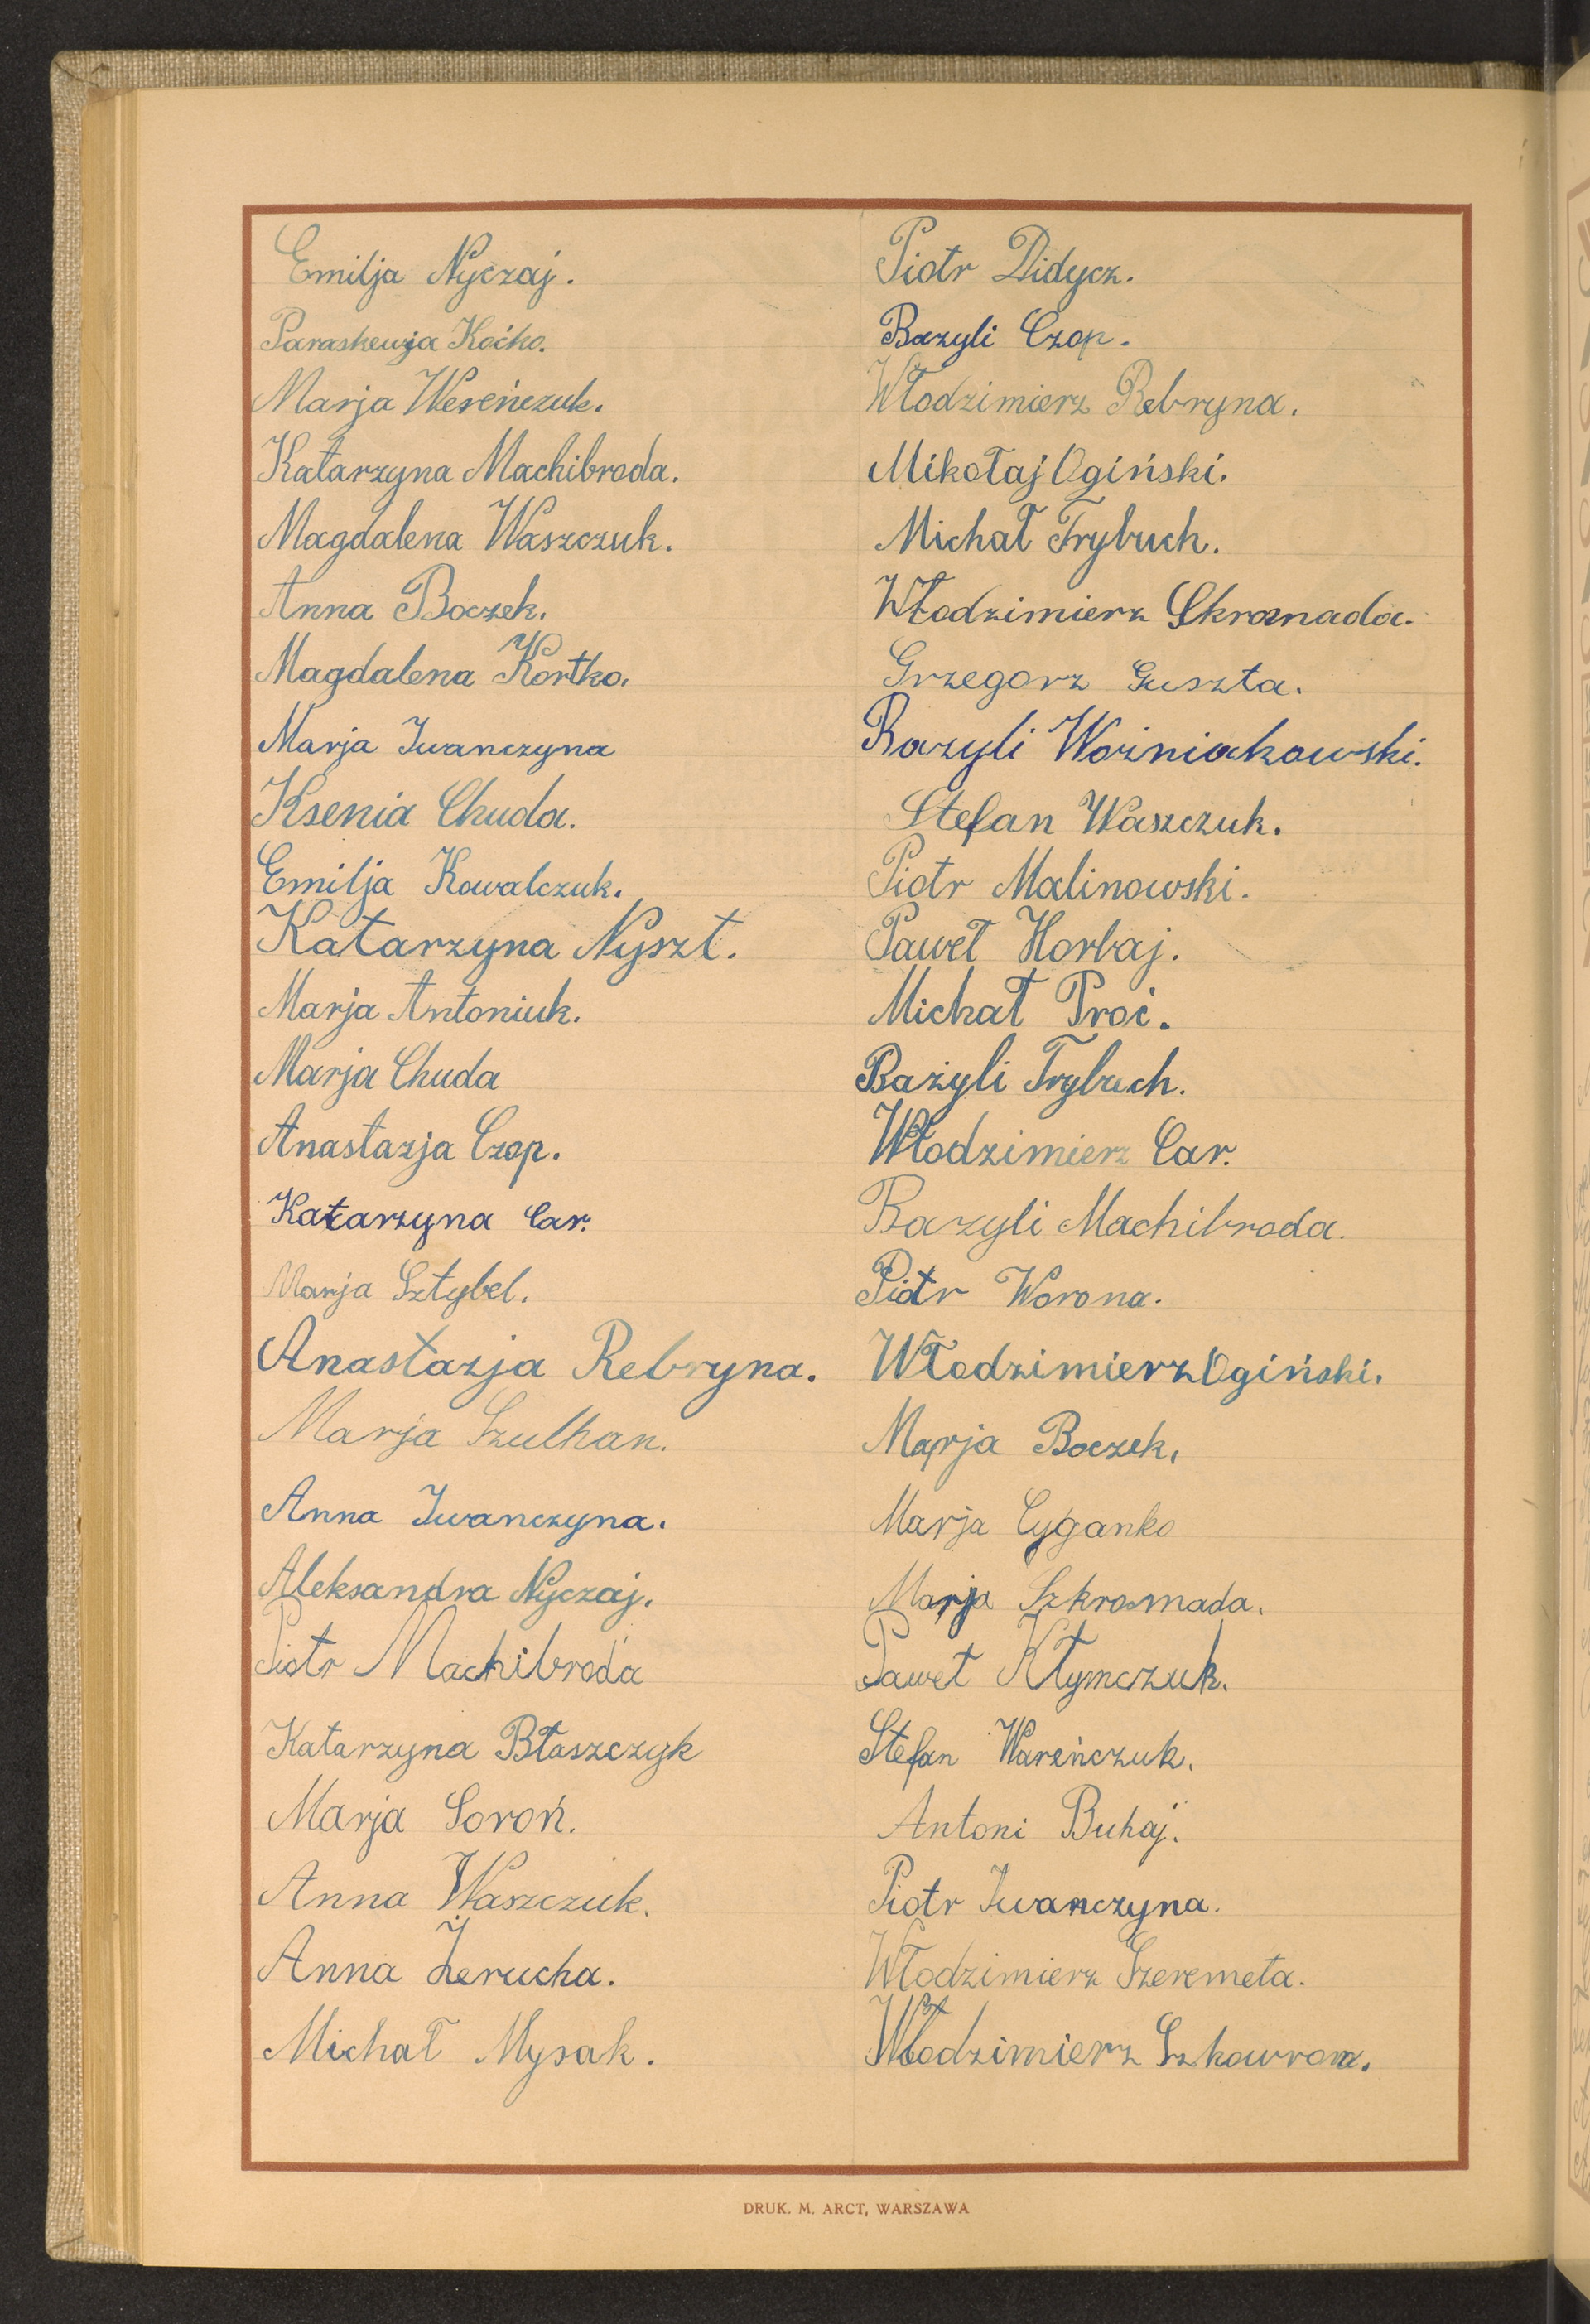 Emilja Nyczaj.
Paraskewja Koćko.
Marja Wereńczuk.
Katarzyna Machibroda.
Magdalena Waszczuk.
Anna Boczek.
Magdalena Kortko.
Marja Iwanczyna
Ksenia Chuda.
Emilja Kowalczuk.
Katarzyna Nyszt.
Marja Antoniuk.
Marja Chuda
Anastazja Czop.
Katarzyna Car.
Marja Sztybel.
Anastazja Rebryna.
Marja Szulhan.
Anna Iwanczyna.
Aleksandra Nyczaj.
Piotr Machibroda
Katarzyna Błaszczyk
Marja Soroń.
Anna Waszczuk.
Anna Żerucha.
Michał Mysak.
Piotr Didycz.
Bazyli Czop.
Włodzimierz Rebryna.
Mikołaj Ogiński.
Michał Trybuch.
Włodzimierz Skromada.
Grzegorz Guszta.
Bazyli Woźniakowski.
Stefan Waszczuk.
Piotr Malinowski.
Paweł Horbaj.
Michał Proć.
Bażyli Trybuch.
Włodzimierz Car.
Bazyli Machibroda.
Piotr Worona.
Włodzimierz Ogiński.
Marja Boczek.
Marja Cyganko
Marja Szkromada.
Paweł Kłymczuk.
Stefan Wareńczuk.
Antoni Buhaj.
Piotr Iwanczyna.
Włodzimierz Szeremeta.
Włodzimierz Szkowron.
DRUK. M. ARCT, WARSZAWA